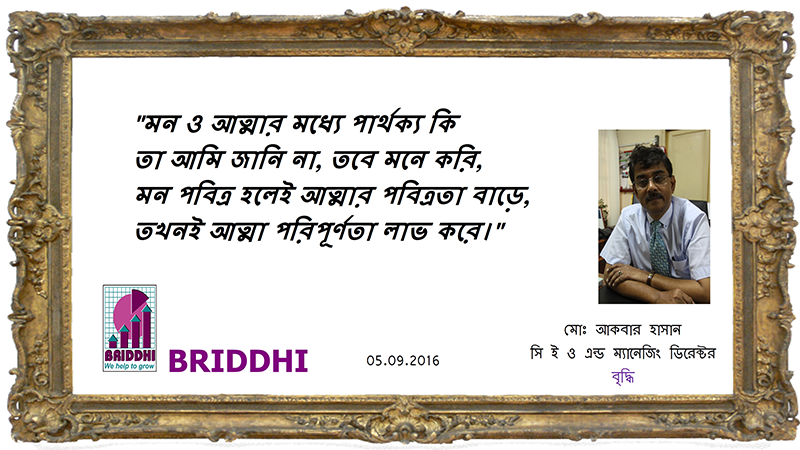 "মন ও আত্মার মধ্যে পার্থক্য কি
তা আমি জানি না, তবে মনে করি,
মন পবিত্র হলেই আত্মার পবিত্রতা বাড়ে,
তখনই আত্মা পরিপূর্ণতা লাভ করে।"
BRIDDHI
We help to grow
BRIDDHI
05.09.2016
মোঃ আকবার হাসান
সি ই ও এন্ড ম্যানেজিং ডিরেক্টর
বৃদ্ধি